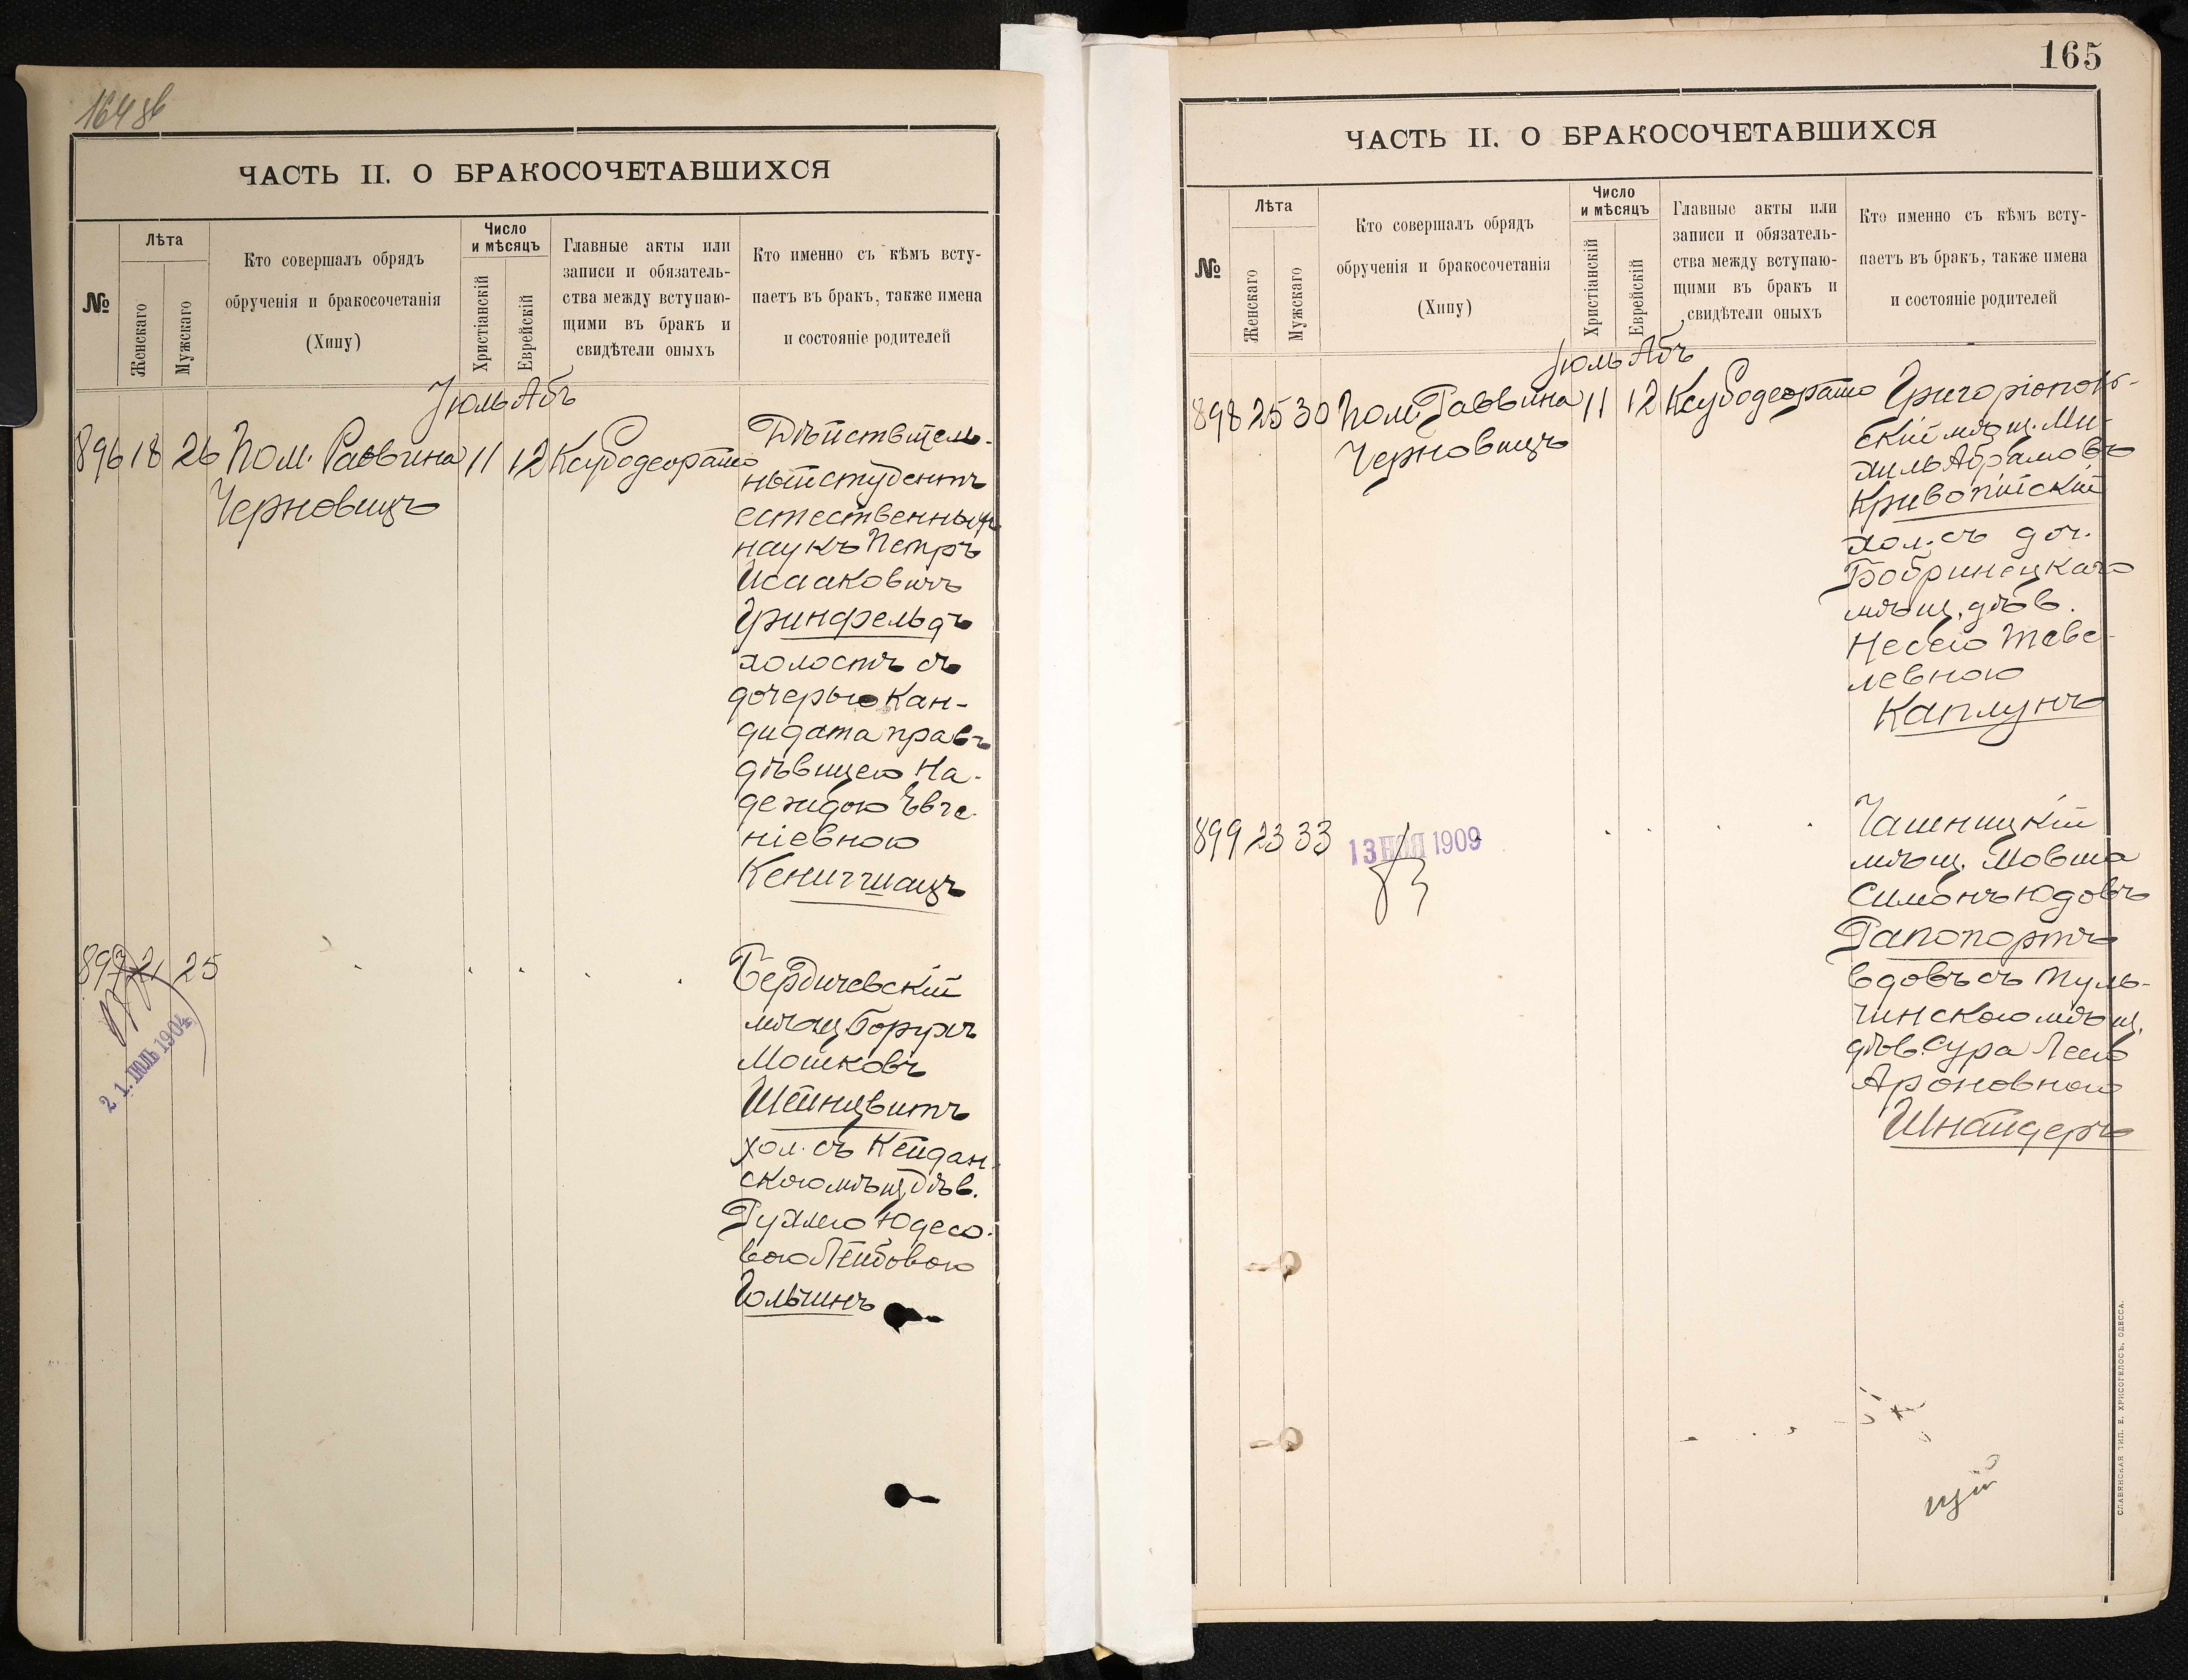 164 об
ЧАСТЬ II. О БРАКОСОЧЕТАВШИХСЯ
№
Лѣта
Женскаго
Мужскаго
Кто совершалъ обрядъ
обрученія и бракосочетанія
(Хипу)
Число
и мѣсяцъ
Христіанскій
Еврейскій
Главные акты или
записи и обязатель-
ства между вступаю-
щими въ бракъ и
свидѣтели оныхъ
Кто именно съ кѣмъ всту-
паетъ въ бракъ, также имена
и состояніе родителей
Іюль Абъ
896 18 26 Пом. Раввина 11 12
Черновицъ
Дѣйствитель-
ный студентъ
естественныхъ
наукъ Петръ
Исааковичъ
Гринфельдъ
холостъ съ
дочерью Кан-
дидата правъ
дѣвицею На-
деждою Евге-
ніевною
Кенигшацъ
897 21 25
21. ІЮЛЬ 1904
Бердичевскій
мѣщ Борухъ
Мошковъ
Шейнцвитъ
хол. съ Кейдан-
скою мѣщ дѣв.
Рухлею Юдесо-
вою Лейбовою
Гольчинъ
165
ЧАСТЬ II. О БРАКОСОЧЕТАВШИХСЯ
№
Лѣта
Женскаго
Мужскаго
Кто совершалъ обрядъ
обрученія и бракосочетанія
(Хипу)
Число
и мѣсяцъ
Христіанскій
Еврейскій
Главные акты или
записи и обязатель-
ства между вступаю-
щими въ бракъ и
свидѣтели оныхъ
Кто именно съ кѣмъ всту-
паетъ въ бракъ, также имена
и состояніе родителей
Іюль Абъ
898 25 30 Пом. Раввина 11 12
Черновицъ
Григоріополь-
скій мѣщ. Ми-
хиль Абрамовъ
Кривопійскій
хол. съ доч.
Бобринецкаго
мѣщ. дѣв.
Несею Теве-
левною
Каплунъ
899 23 33
13 НОЯ 1909
Чашницкій
мѣщ. Мовша
Симонъ Юдовъ
Рапопортъ
вдовъ съ Туль-
чинскою мѣщ.
дѣв. Сура Леею
Ароновною
Шнайдеръ
СЛАВЯНСКАЯ ТИП. Е. ХРИСОГЕЛОСЪ, ОДЕССА.